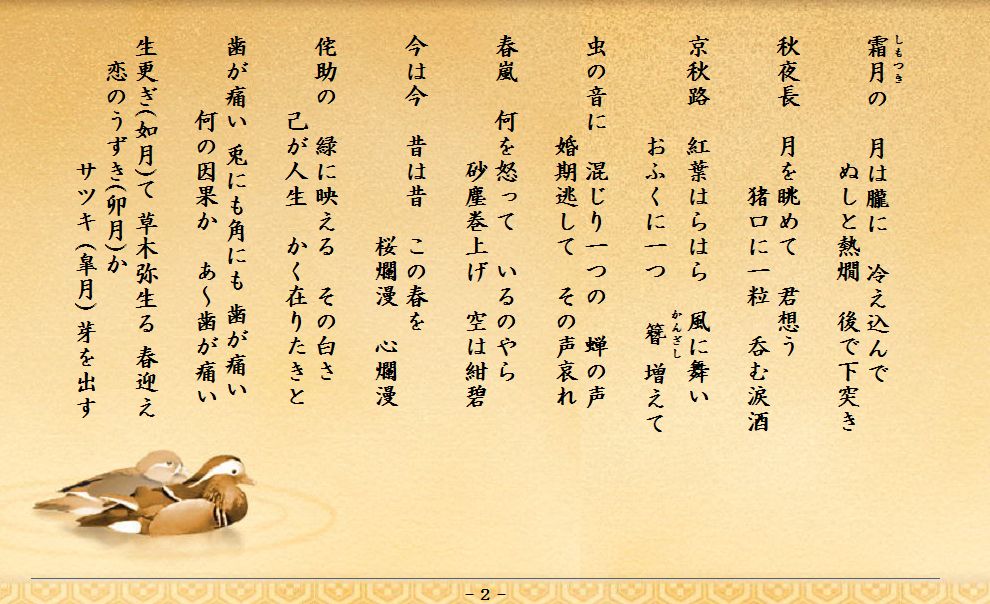 霜月の 月は朧に 冷え込んで
しもつき
ぬしと熱燗 後で下突き
秋夜長 月を眺めて 君想う
猪口に一粒 呑む涙酒
京秋路 紅葉はらはら 風に舞い
おふくに一つ 簪 増えて
かんざし
虫の音に 混じり一つの 蝉の声
婚期逃して その声哀れ
春嵐 何を怒って いるのやら
砂塵巻上げ 空は紺碧
今は今 昔は昔 この春を
桜爛漫 心爛漫
侘助の 緑に映える その白さ
己が人生 かく在りたきと
歯が痛い 兎にも角にも 歯が痛い
何の因果か あ～歯が痛い
生更ぎ(如月)て 草木弥生る 春迎え
恋のうずき(卯月)か
サツキ(皐月)芽を出す
- 2 -